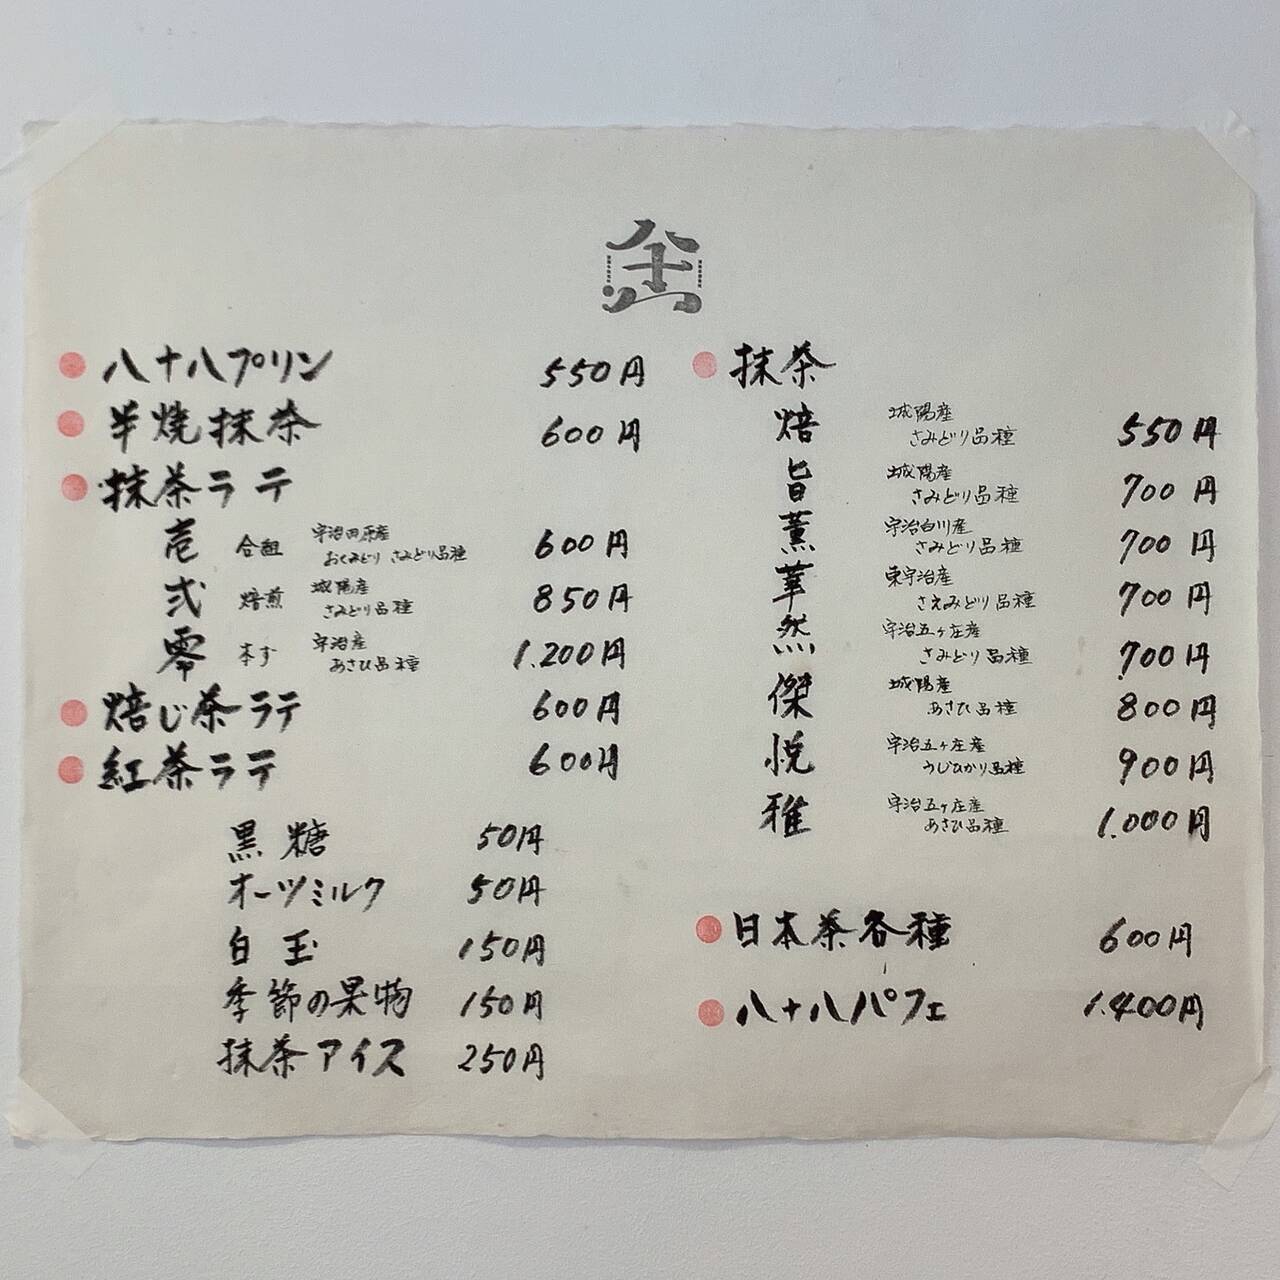 八十八プリン 550円
半焼抹茶 600円
抹茶ラテ
壱 合組 宇治田原産 おくみどり さみどり品種 600円
弐 焙煎 城陽産 さみどり品種 850円
零 本ず 宇治産 あさひ品種 1.200円
焙じ茶ラテ 600円
紅茶ラテ 600円
黒糖 50円
オーツミルク 50円
白玉 150円
季節の果物 150円
抹茶アイス 250円
抹茶
焙 城陽産 さみどり品種 550円
旨 城陽産 さみどり品種 700円
薫 宇治白川産 さみどり品種 700円
華 東宇治産 さえみどり品種 700円
然 宇治五ヶ庄産 さみどり品種 700円
傑 城陽産 あさひ品種 800円
悦 宇治五ヶ庄産 うじひかり品種 900円
雅 宇治五ヶ庄産 あさひ品種 1.000円
日本茶各種 600円
八十八パフェ 1.400円